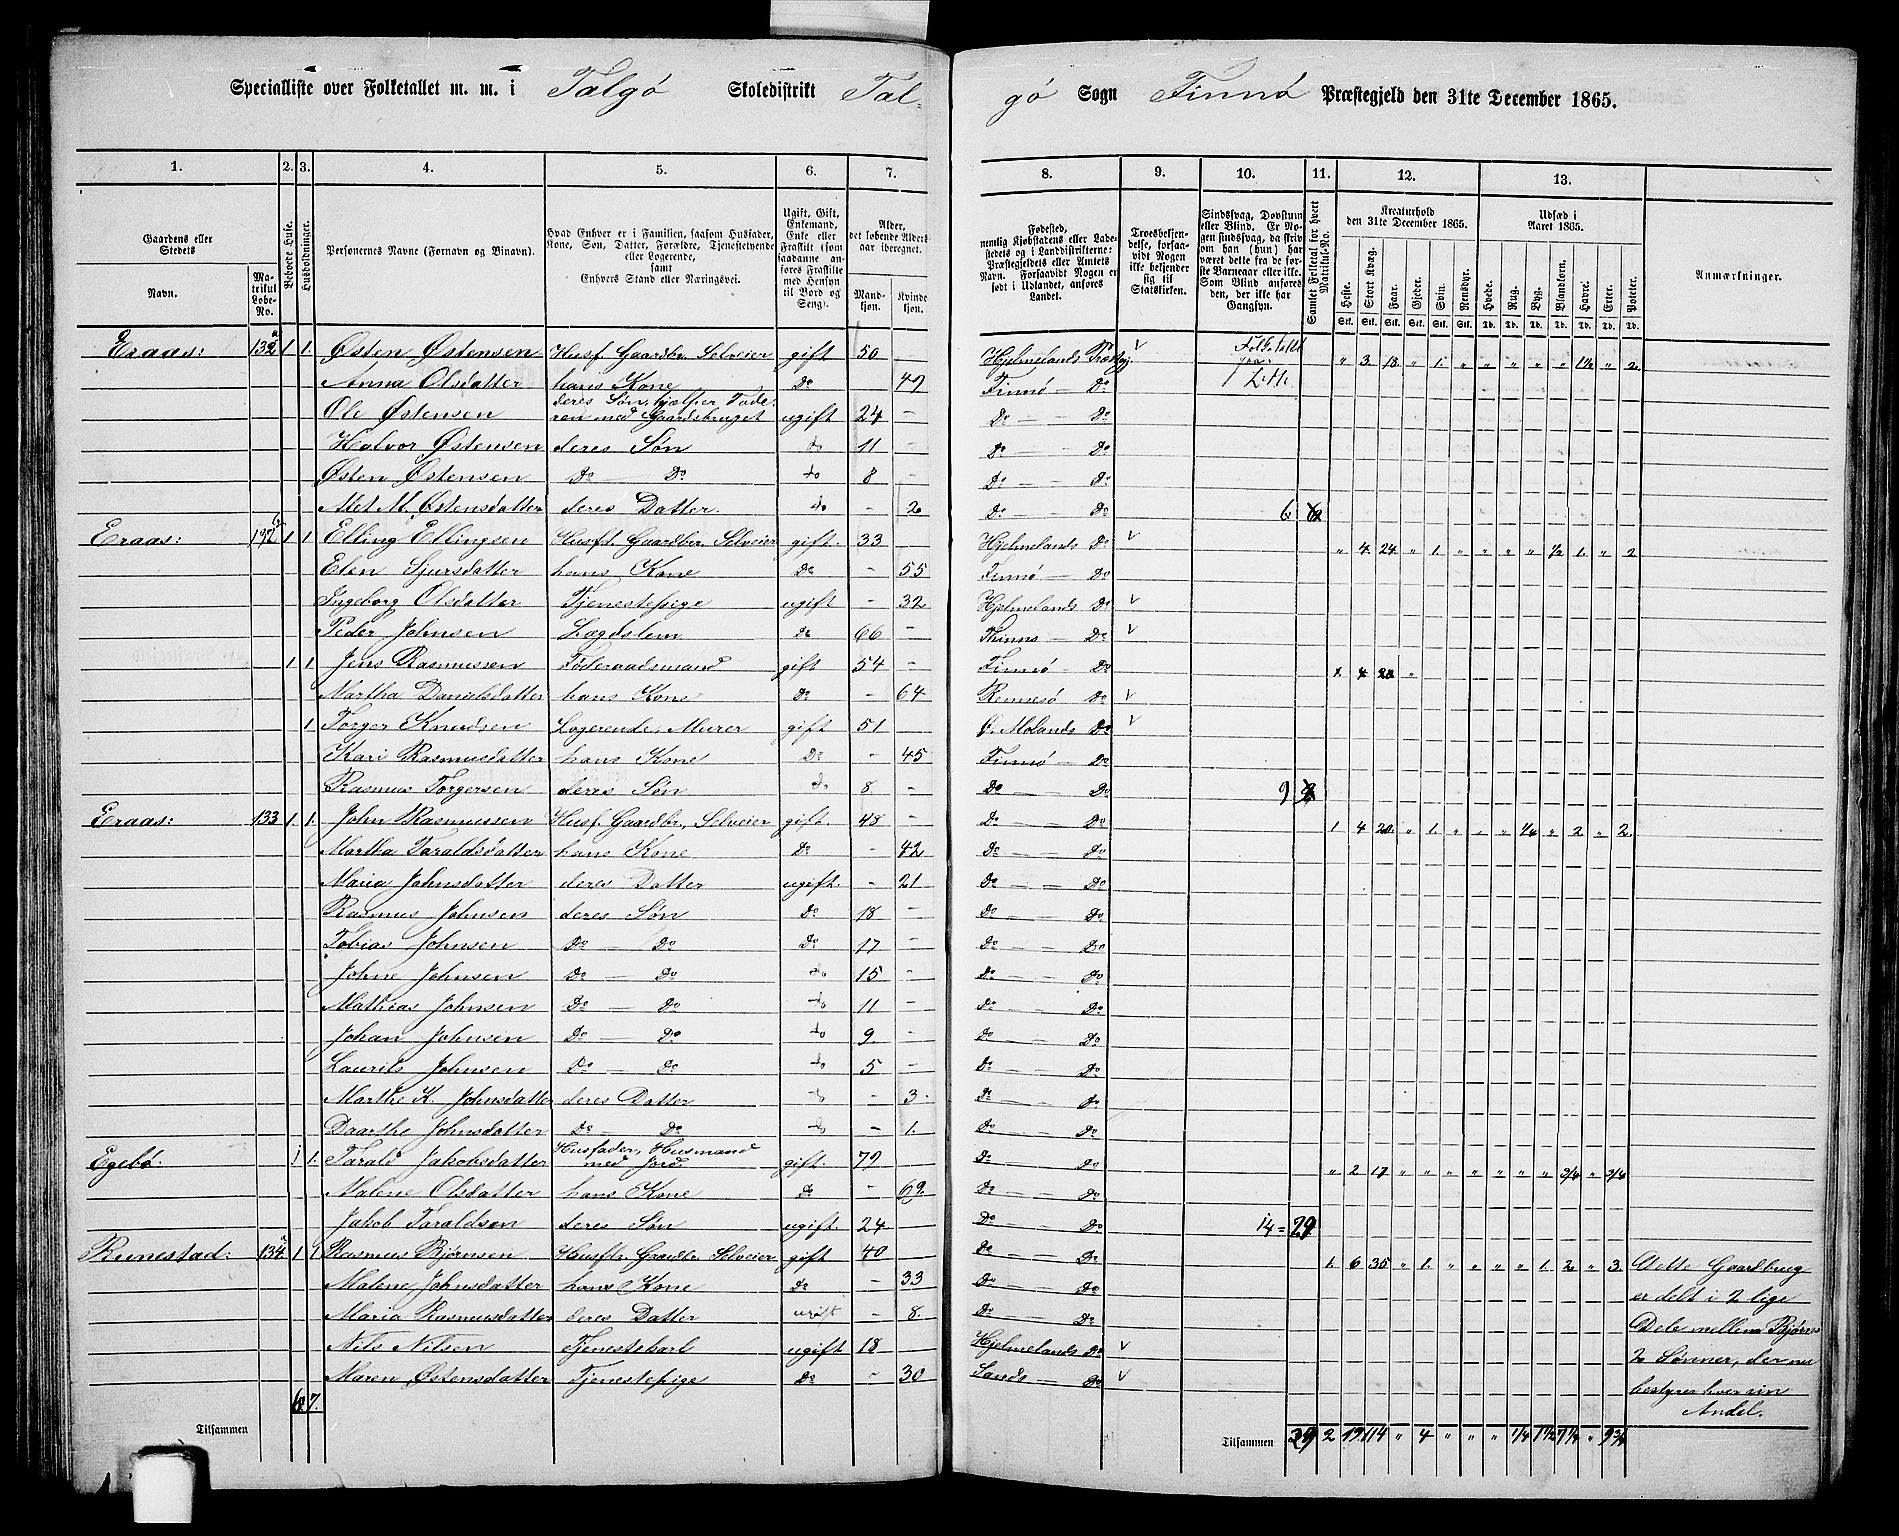 Specialliste over Folketallet m. m. i Talgø Skoledistrikt Tal-
gø Sogn Finnø Præstegjeld den 31te December 1865.
1. 2. 3. 4. 5. 6. 7.
8. 9. 10. 11. 12. 13.
Gaardens eller Stedets
Navn.
Matrikul Løbe-No.
Beboede Huse.
Husholdninger.
Personernes Navne (Fornavn og Binavn).
Hvad Enhver er i Familien, saasom Husfader, Kone, Søn, Datter, Forældre, Tjenestetyende eller Logerende, samt Enhvers Stand eller Næringsvei.
Ugift, Gift, Enkemand, Enke eller Fraskilt (som saadanne anføres Fraskilte med Hensyn til Bord og Seng).
Alder, det løbende Alders-aar iberegnet.
Mandkjøn. Kvindekjøn.
Fødested, nemlig Kjøbstadens eller Ladestedets og i Landdistrikterne: Præstegjeldets eller Amtets Navn. Forsaavidt Nogen er født i Udlandet, anføres Landet.
Troesbekjendelse, forsaavidt Nogen ikke bekjender sig til Statskirken.
Sindssvag, Døvstum eller Blind. Er Nogen sindssvag, da skriv om han (hun) har været dette fra de første Barneaar eller ikke. Som Blind anføres den, der ikke har Gangsyn.
Samlet Folketal for hvert Matrikuls-No.
Kreaturhold den 31te December 1865.
Heste. Stort Kvæg. Faar. Gjeder. Svin. Rensdyr.
Udsæd i Aaret 1865.
Hvede. Rug. Byg. Blandkorn. Havre. Erter. Poteter.
Anmærkninger.
Eraas: 132a 1. 1. Østen Østensen Husf. Gaardbr. Selveier gift 50 - Hjelmelands Præstgj v Folketallet " 3. 18. " 1. " " " " " 1½ " 2.
Anna Olsdatter hans Kone Do 49 Finnø - Do
Ole Østensen deres Søn, hjælper Faderen med Gaardsbruget ugift 24 - Do - Do
Halvor Østensen deres Søn do 11 - Do - Do
Østen Østensen Do - Do do 8 - Do - Do
Met M. Østensdatter deres Datter. do - 2 Do - Do 6.
Eraas: 132b 1 1 Elling Ellingsen Husf. Gaardbr. Selveier gift. 33 Hjelmelands Do v " 4 24. " 1. " " " " ½ 1. " 2
Elen Sjursdatter hans Kone Do - 55 Finnø - Do
Ingeborg Olsdatter Tjenestepige ugift - 32 Hjelmelands Do v
Peder Johnsen Lægdslem Do 66 - Do v
1 1 Jens Rasmussen Føderaadsmand gift 54 - Finnø - Do
Martha Danielsdatter hans Kone Do - 64 Rennesø Do v
1 Torger Knudsen Logerende, Murer gift 51 Ø. Molands Do v
Kari Rasmusdatter hans Kone Do - 45 Finnø - Do
Rasmus Torgersen deres Søn do 8 - Do - Do 9
Eraas: 133 1. 1. John Rasmussen Husf. Gaardbr, Selveier gift. 48 - Do - Do 1 4 20. " 1. " " " ¼ " 2 " 2.
Martha Taraldsdatter hans Kone Do - 42 Do - Do
Maria Johnsdatter deres Datter ugift. - 21 Do - Do
Rasmus Johnsen deres Søn Do 18 - Do - Do
Tobias Johnsen Do - Do Do 17 - Do - Do
Johne Johnsen Do - Do do 15 - Do - Do
Mathias Johnsen Do - Do do 11 - Do - Do
Johan Johnsen Do - Do do 9. - Do - Do
Laurits Johnsen Do - Do do 5 - Do - Do
Marthe K. Johnsdatter deres Datter do - 3. Do - Do
Daarthe Johnsdatter Do - Do do - 1. Do - Do
Egebø: 1 1. Tarald Jakobsdatter Husfader, Husmand med Jord. gift. 79 Do - Do " 2 17 " " " " " " " ¾ " ¾
Malene Olsdatter hans Kone Do - 69. Do - Do
Jakob Taraldsen deres Søn ugift. 24 Do - Do 14 = 29
Runestad: 134a 1 1 Rasmus Bjørnsen Husf. Gaardbr Selveier gift 40 Do - Do 1. 6 35 " 1. " " " " 1. 2 " 3. Dette Gaardbrug
Malene Johnsdatter hans Kone Do - 33 Do - Do er delt i 2 lige
Maria Rasmusdatter deres Datter ugift - 8. Do - Do Dele mellem Bjørns
Nils Nilsen Tjenestekarl ugift 18 Hjelmelands Do v 2 Sønner, der nu
Maren Østensdatter Tjenestepige Do - 30 Sands - Do v bestyrer hver sin
6. 7. Andel.
Tilsammen
Tilsammen 2 19 114 " 4 " " " ¼ 1½ 7½ " 9¾